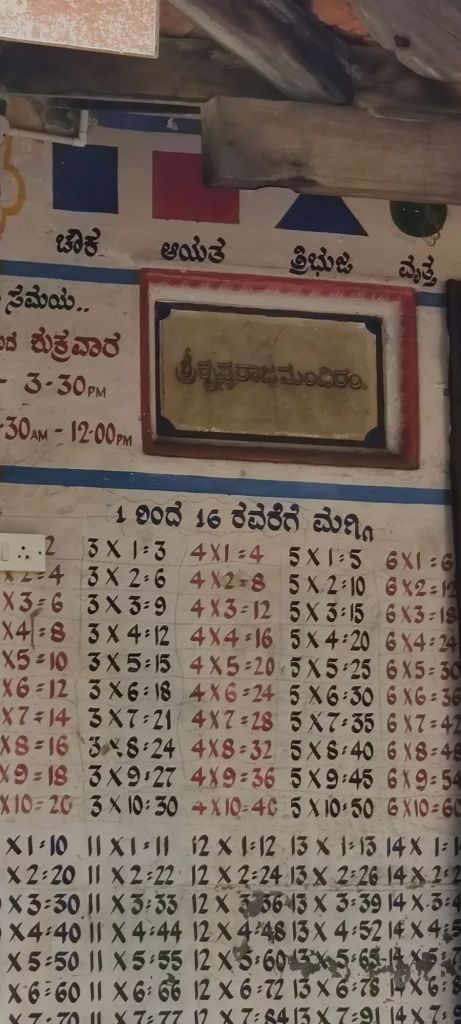 ಚೌಕ ಆಯತ ತ್ರಿಭುಜ ವೃತ್ತ
ಸಮಯ..
ಶುಕ್ರವಾರ
- 3-30PM
-30AM - 12-00PM
ಶ್ರೀಕೃಷ್ಣರಾಜಮಂದಿರಂ.
1 ರಿಂದ 16 ರವರೆಗೆ ಮಗ್ಗಿ
2 3 X 1=3 4 X 1 = 4 5 X 1=5 6 X 1 = 6
X 2 = 4 3 X 2=6 4 X 2 = 8 5 X 2=10 6 X 2 = 12
X 3 = 6 3 X 3=9 4 X 3 = 12 5 X 3=15 6 X 3 = 18
X 4 = 8 3 X 4=12 4 X 4 = 16 5 X 4=20 6 X 4 = 24
X 5 = 10 3 X 5=15 4 X 5 = 20 5 X 5=25 6 X 5 = 30
X 6 = 12 3 X 6=18 4 X 6 = 24 5 X 6=30 6 X 6 = 36
X 7 = 14 3 X 7=21 4 X 7 = 28 5 X 7=35 6 X 7 = 42
X 8 = 16 3 X 8=24 4 X 8 = 32 5 X 8=40 6 X 8 = 48
X 9 = 18 3 X 9=27 4 X 9 = 36 5 X 9=45 6 X 9 = 54
X 10 = 20 3 X 10=30 4 X 10 = 40 5 X 10=50 6 X 10 = 60
X 1=10 11 X 1=11 12 X 1=12 13 X 1=13 14 X 1=
X 2=20 11 X 2=22 12 X 2=24 13 X 2=26 14 X 2=2
X 3=30 11 X 3=33 12 X 3=36 13 X 3=39 14 X 3=
X 4=40 11 X 4=44 12 X 4=48 13 X 4=52 14 X 4=5
X 5=50 11 X 5=55 12 X 5=60 13 X 5=65 14 X 5=7
X 6=60 11 X 6=66 12 X 6=72 13 X 6=78 14 X 6=8
X 7=70 11 X 7=77 12 X 7=84 13 X 7=91 14 X 7=9